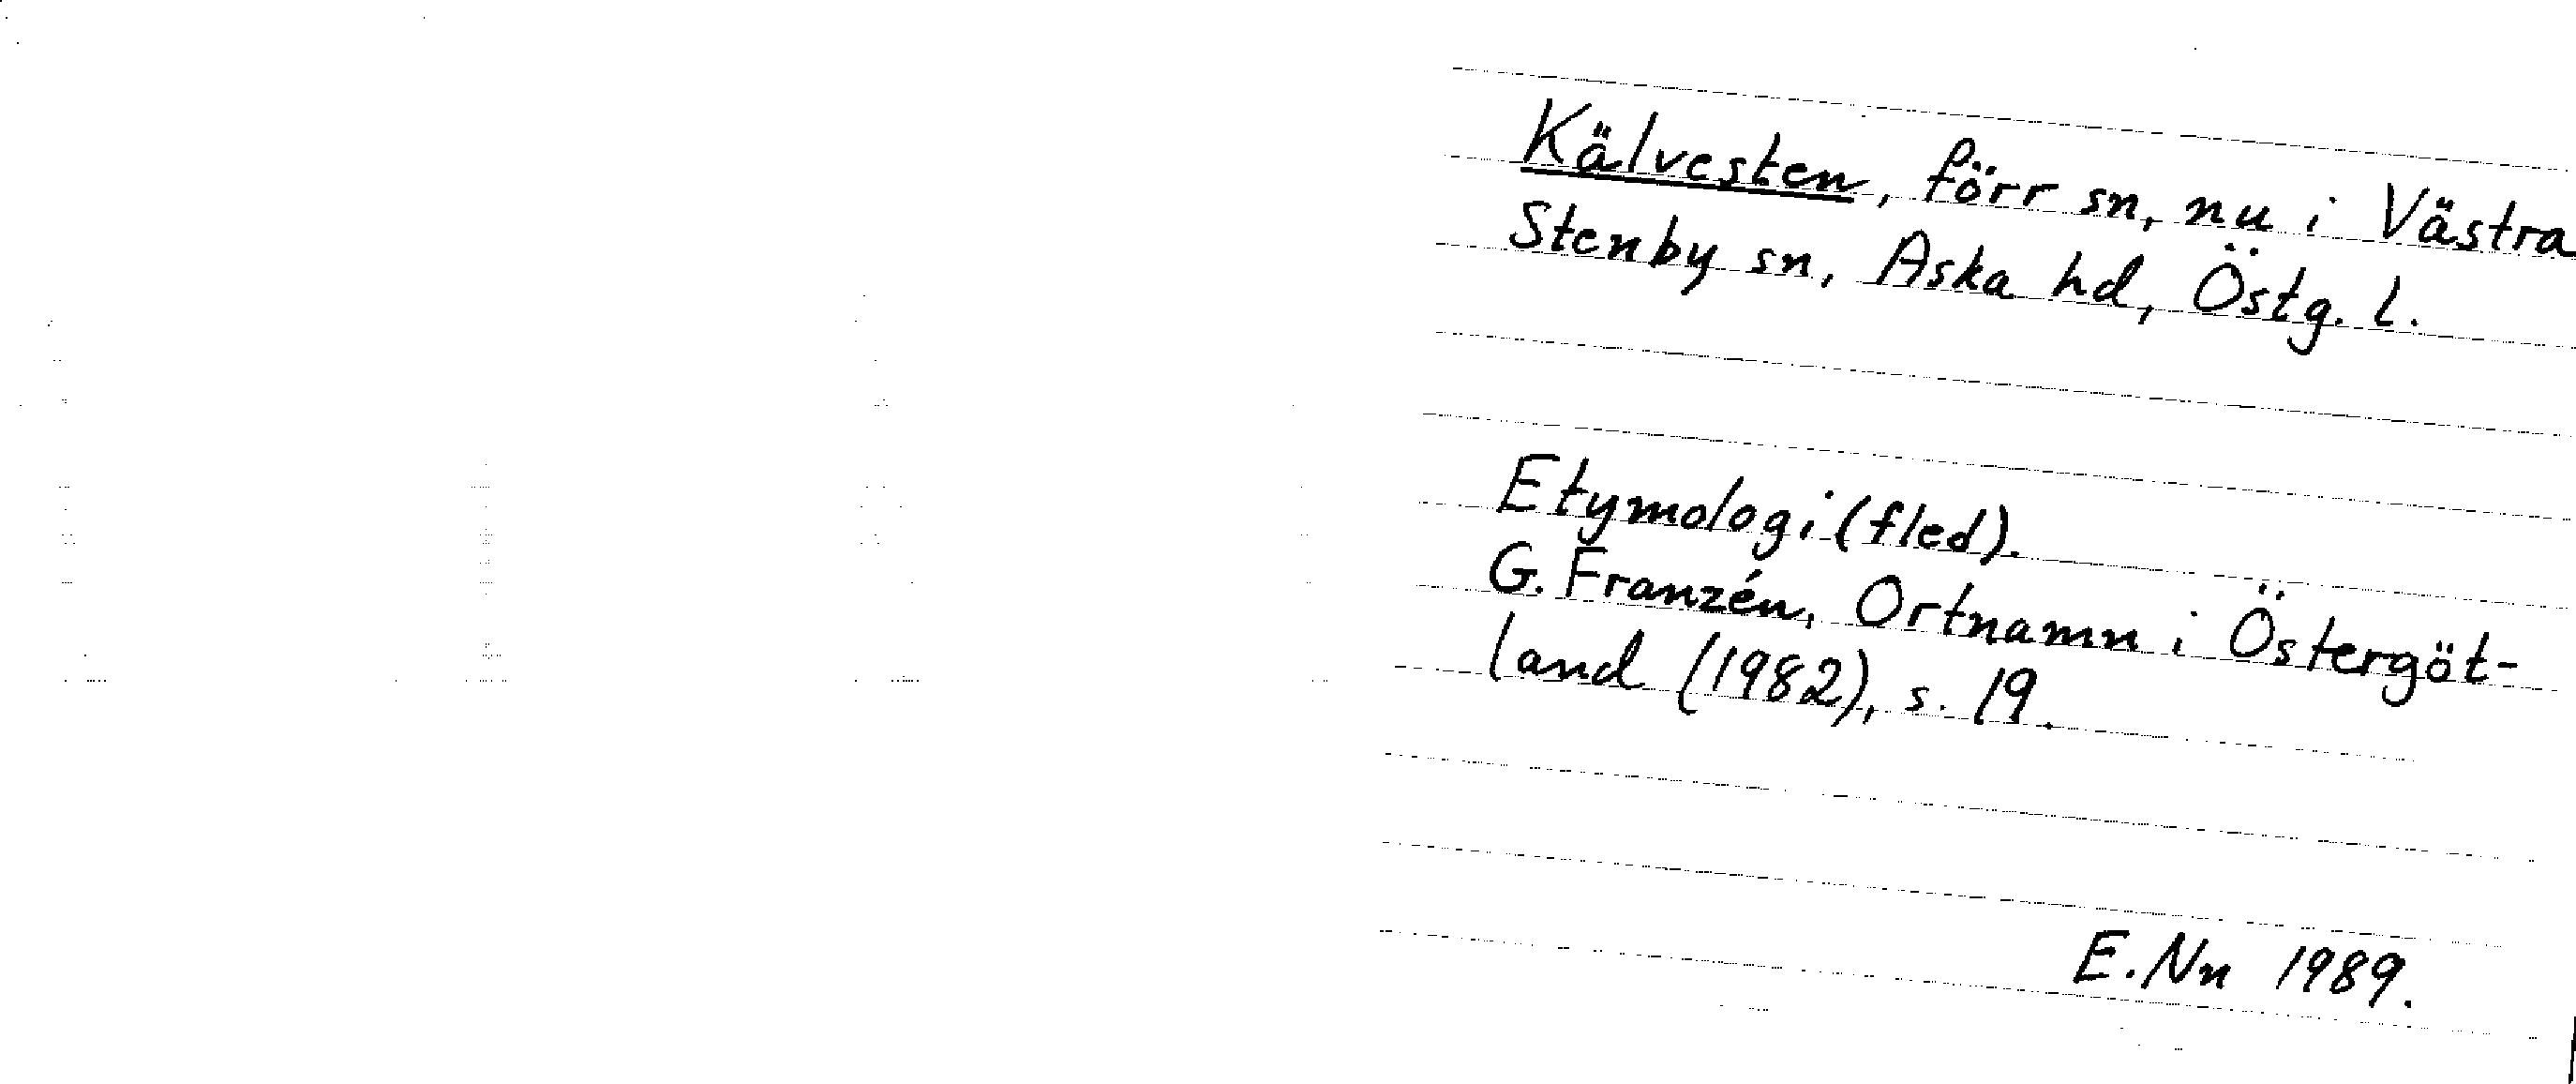 Kälvesten, förr sn, nu i Västra
Stenby sn, Aska hd, Östg. l.
Etymologi (fled).
G. Franzén, Ortnamn i Östergöt-
land (1982), s. 19.
E. Nn 1989.